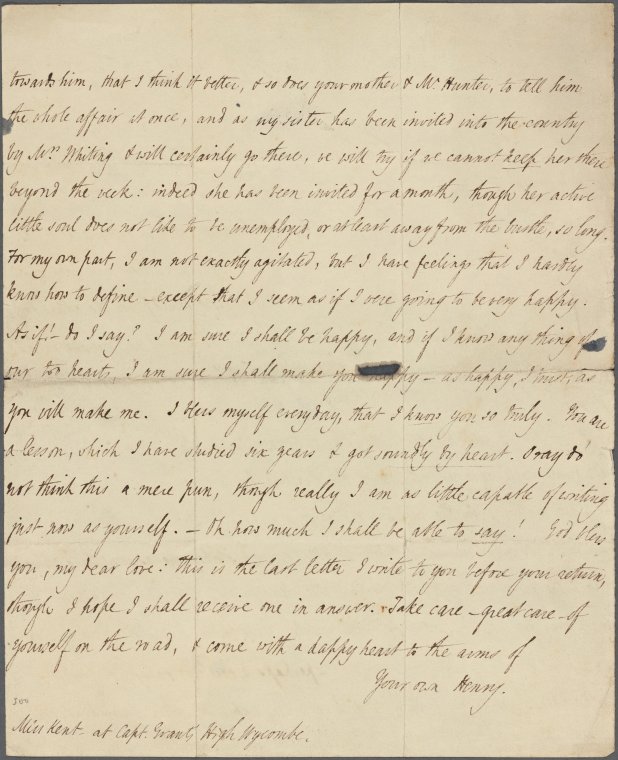 towards him, that I think it better, & so does your mother & Mr. Hunter, to tell him
the whole affair at once, and as my sister has been invited into the country
by Mrs. Whiting & will certainly go there, we will try if we cannot keep her there
beyond the week: indeed she has been invited for a month, though her active
little soul does not like to be unemployed, or at least away from the bustle, so long.
For my own part, I am not exactly agitated, but I have feelings that I hardly
know how to define – except that I seem as if I were going to be very happy.
As if! – do I say? I am sure I shall be happy, and if I know any thing of
our two hearts, I am sure I shall make you happy – as happy, I trust, as
you will make me. I bless myself everyday, that I know you so truly. You are
a lesson, which I have studied six years & got soundly by heart. Pray do
not think this a mere pun, though really I am as little capable of writing
just now as yourself. – Oh how much I shall be able to say! God bless
you, my dear love: this is the last letter I write to you before your return,
though I hope I shall receive one in answer. Take care – great care – of
yourself on the road, & come with a happy heart to the arms of
Your own Henry.
Miss Kent – at Capt. Grant's High Wycombe.